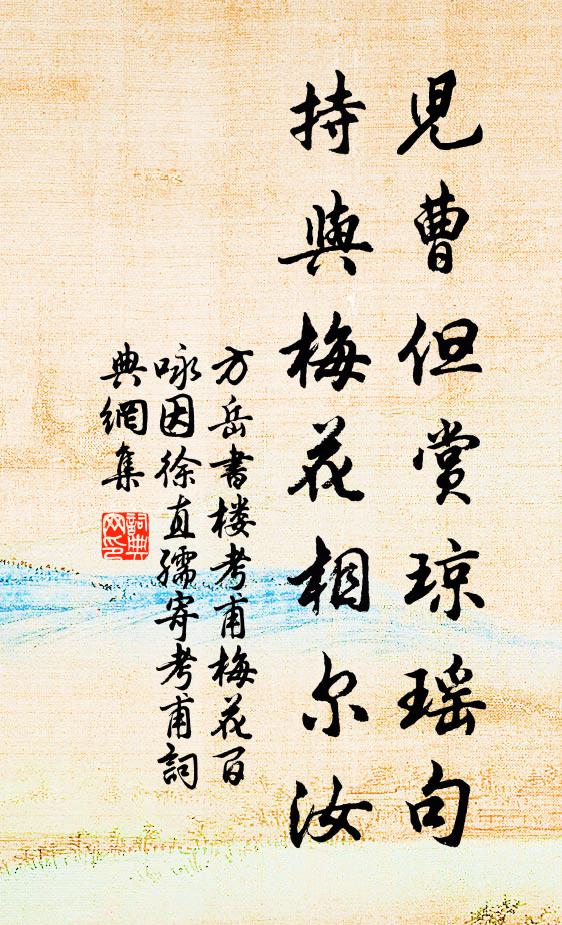 児曹但赏琼瑶句
持與梅花相尔汝
方岳書楼考甫梅花百
咏因徐直孺寄考甫詞
典網集
詞典
网印